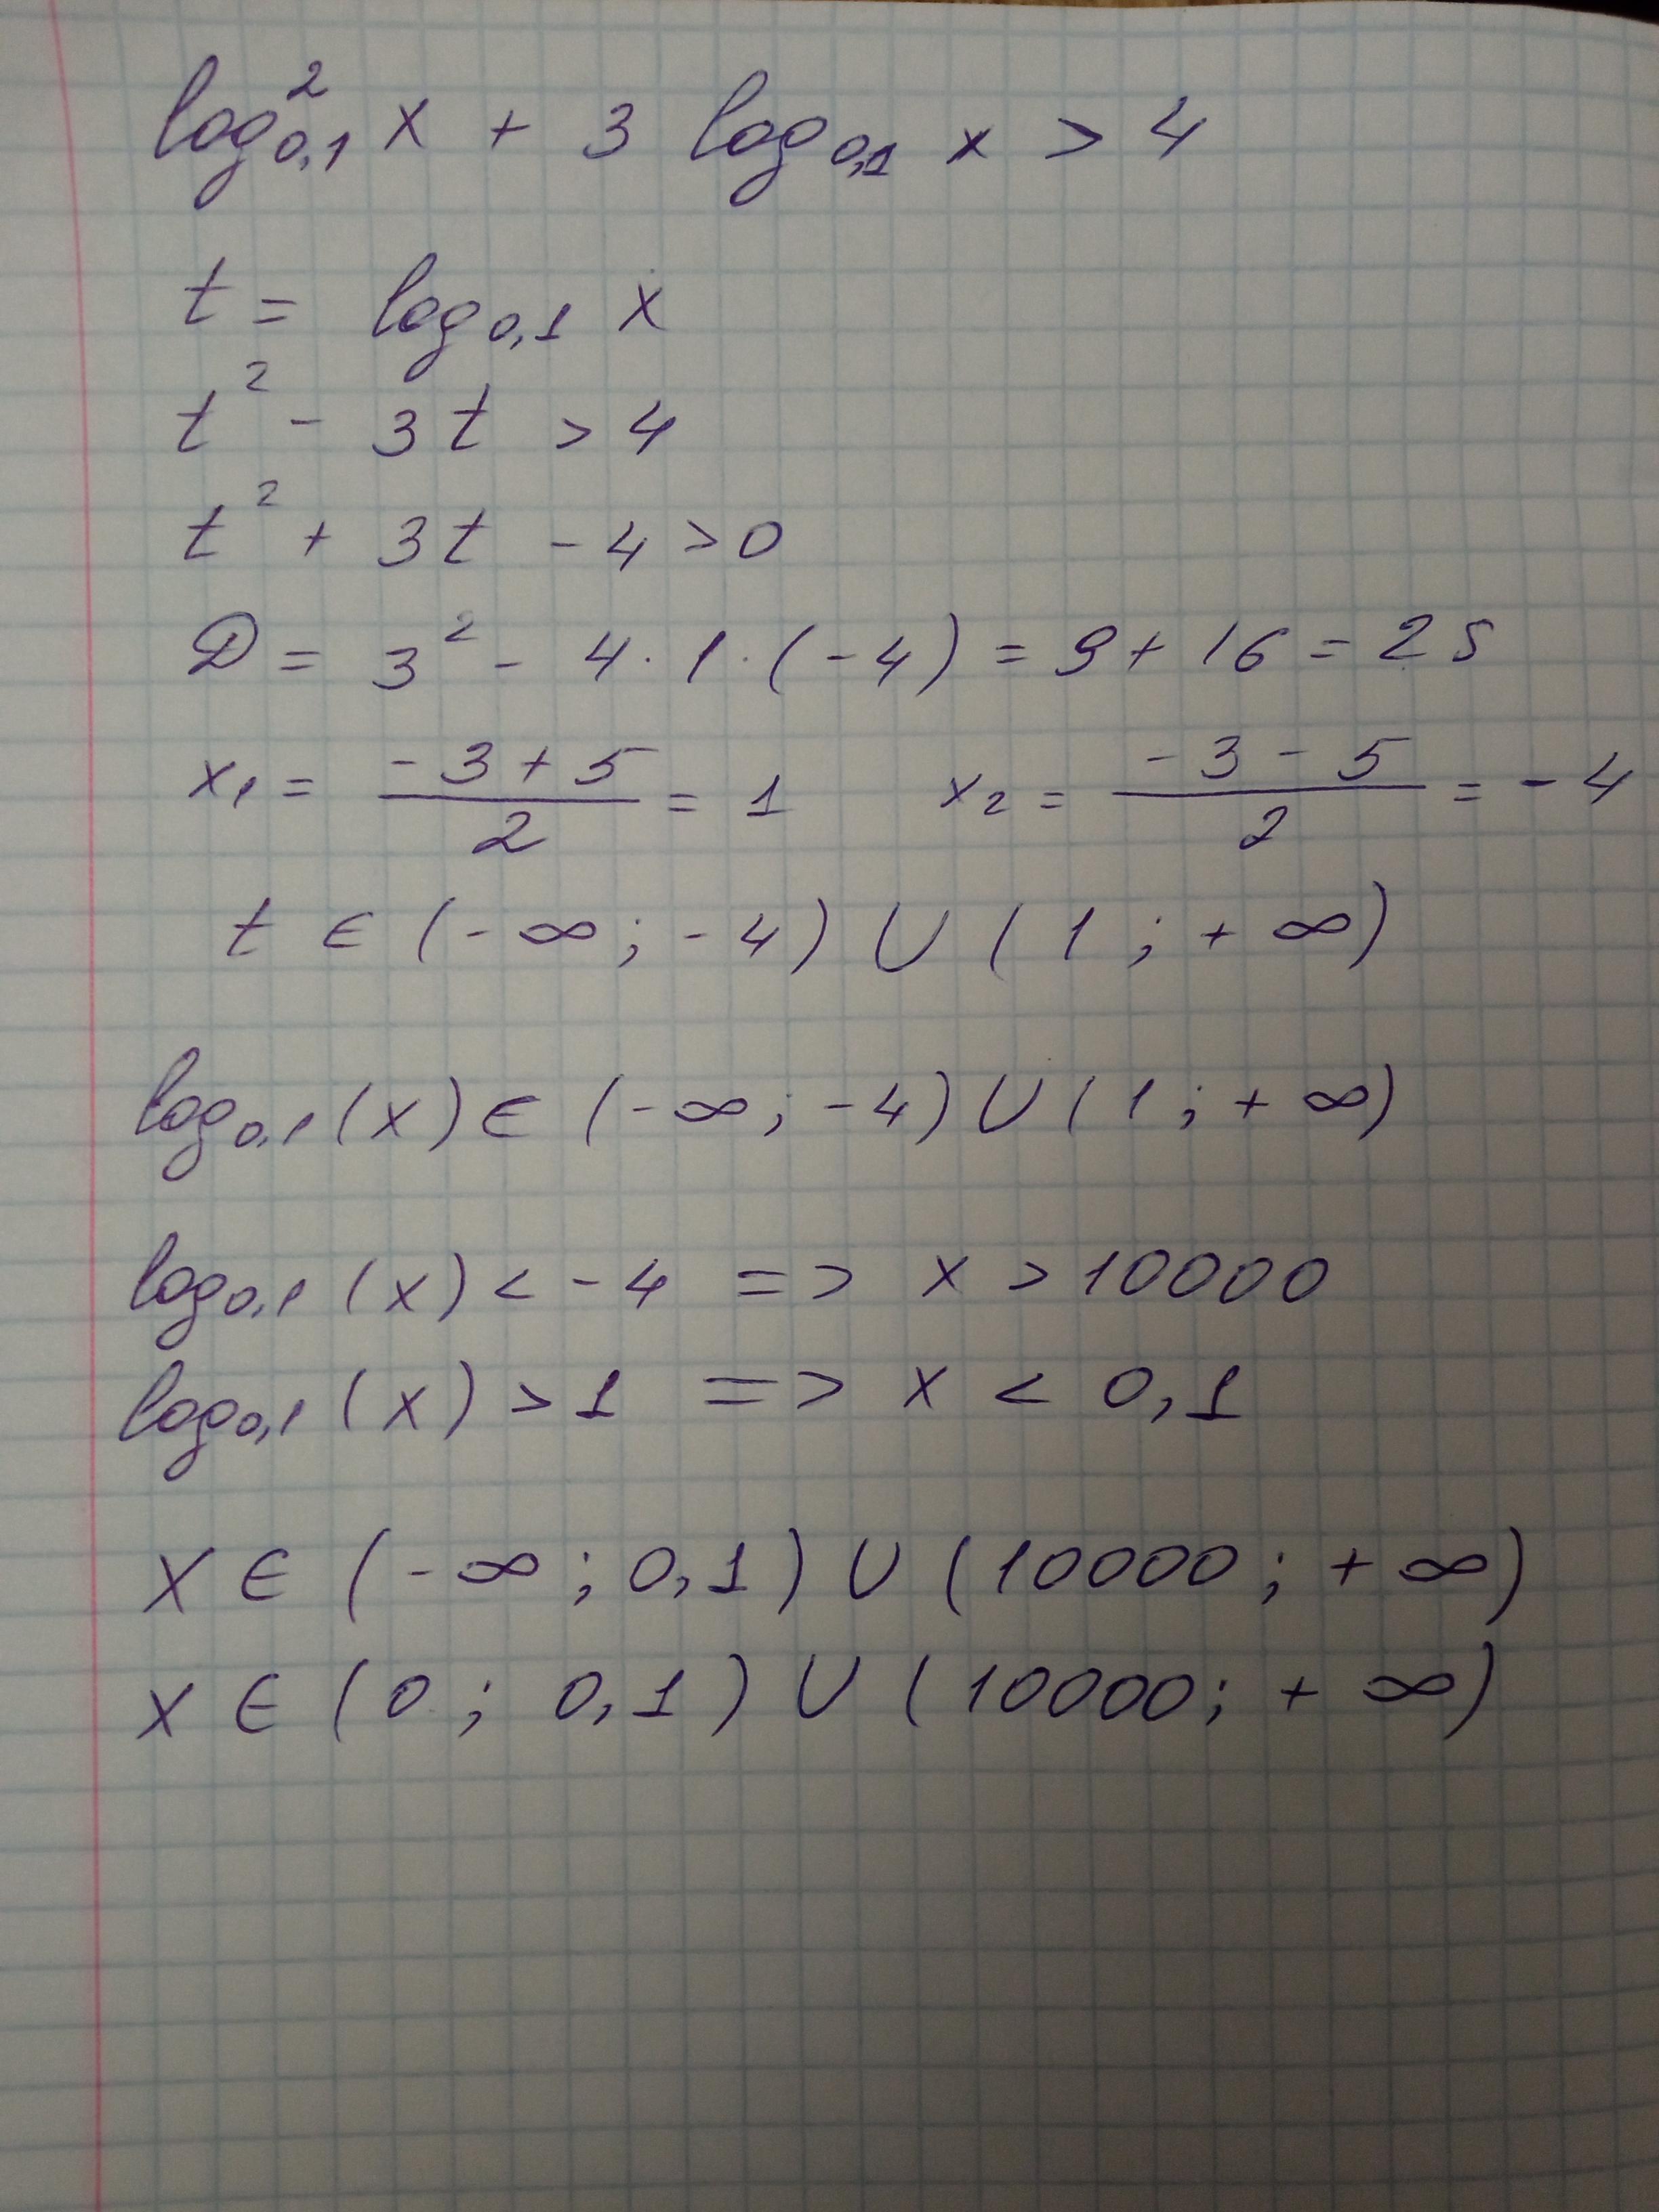 log²₀,₁ x + 3 log₀,₁ x > 4
t = log₀,₁ x
t² - 3t > 4
t² + 3t - 4 > 0
D = 3² - 4 · 1 · (-4) = 9 + 16 = 25
x₁ = (-3 + 5)/2 = 1 x₂ = (-3 - 5)/2 = -4
t ∈ (-∞; -4) ∪ (1; +∞)
log₀,₁ (x) ∈ (-∞; -4) ∪ (1; +∞)
log₀,₁ (x) < -4 => x > 10000
log₀,₁ (x) > 1 => x < 0,1
x ∈ (-∞; 0,1) ∪ (10000; +∞)
x ∈ (0; 0,1) ∪ (10000; +∞)